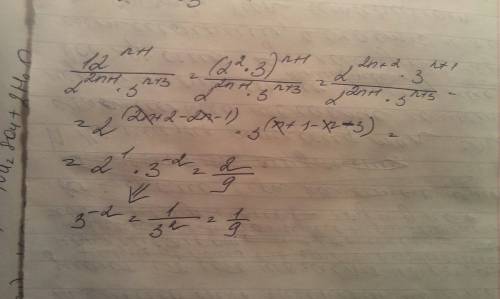 12^(n+1) / (2^(2n+1) · 3^(n+3)) = (2^2 · 3)^(n+1) / (2^(2n+1) · 3^(n+3)) = 2^(2n+2) · 3^(n+1) / (2^(2n+1) · 3^(n+3)) =
= 2^(2n+2-2n-1) · 3^(n+1-n-3) =
= 2^1 · 3^(-2) = 2/9
3^(-2) = 1/3^2 = 1/9